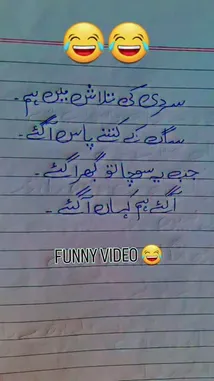 😂😂
سردی کی تلاش میں ہم۔
کے کتنے پاس آگئے۔
جب یہ سوچا تو گھبرا گئے۔
آگئے ہم کہاں آگئے۔
FUNNY VIDEO 😂